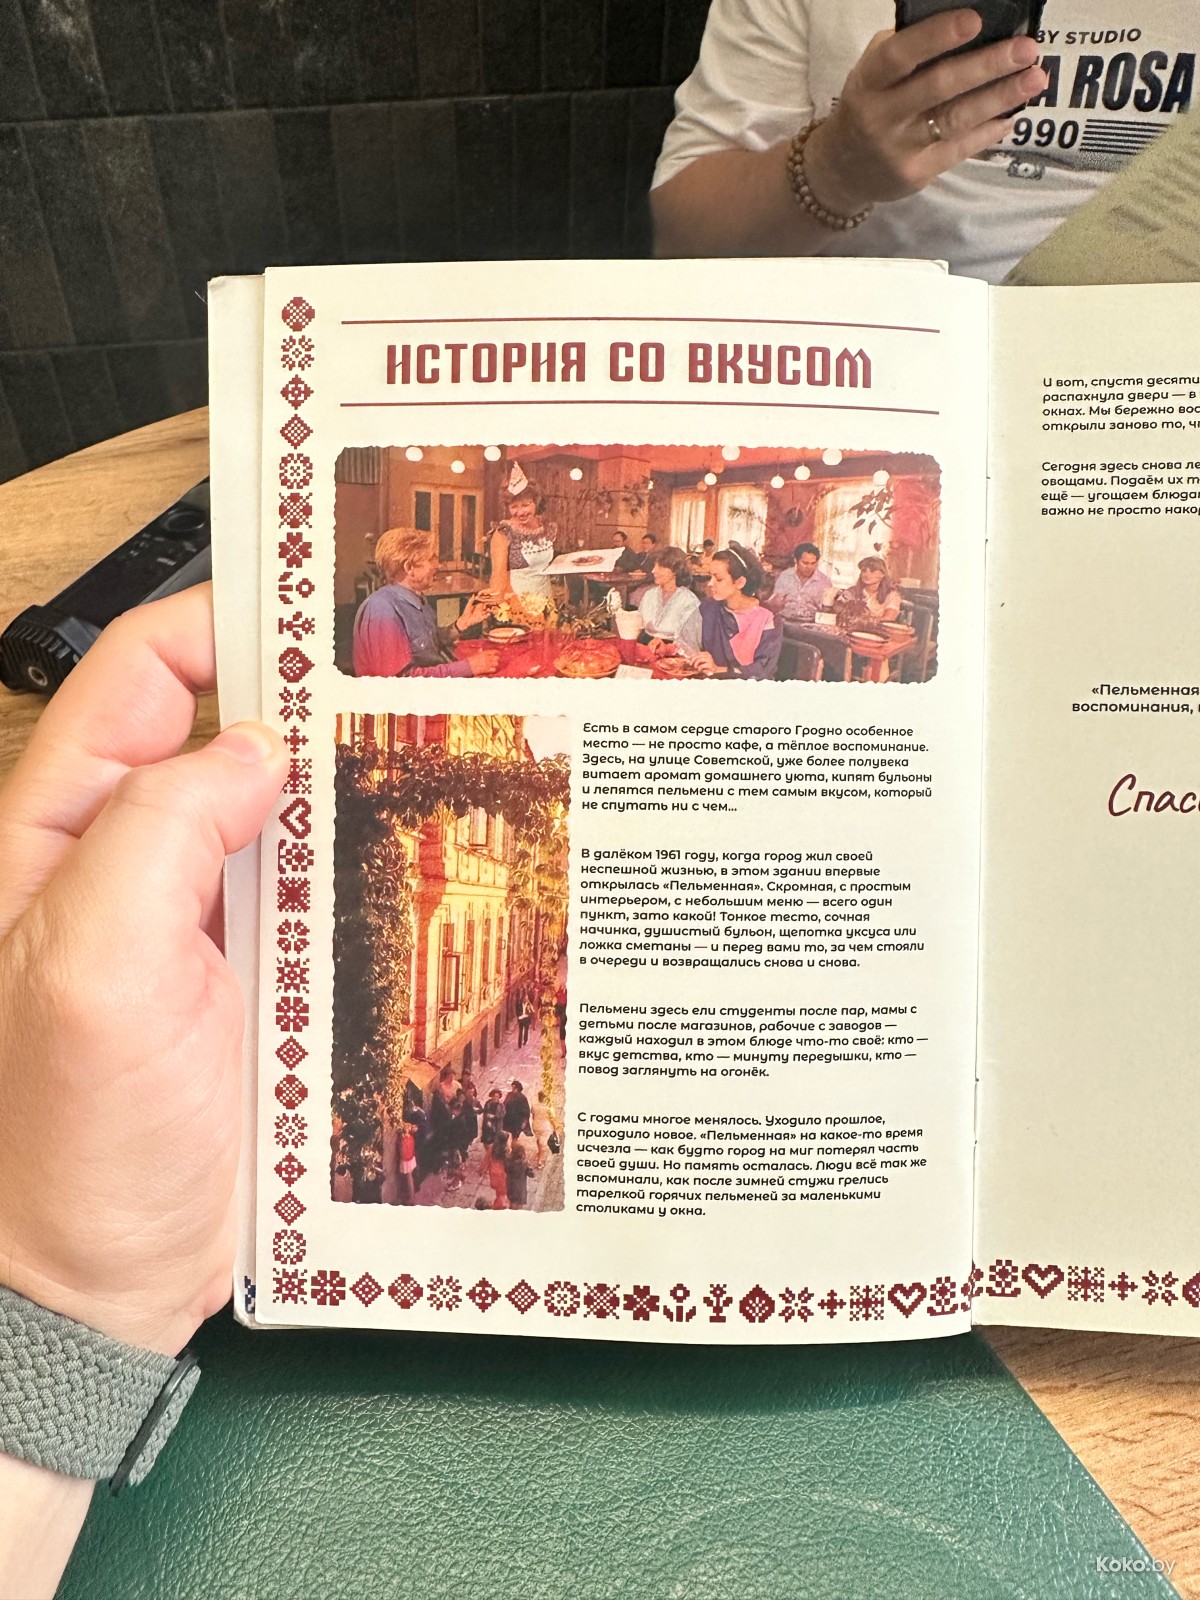 BY STUDIO
ROSA
1990
ИСТОРИЯ СО ВКУСОМ
Есть в самом сердце старого Гродно особенное
место — не просто кафе, а тёплое воспоминание.
Здесь, на улице Советской, уже более полувека
витает аромат домашнего уюта, кипят бульоны
и лепятся пельмени с тем самым вкусом, который
не спутать ни с чем...
В далёком 1961 году, когда город жил своей
неспешной жизнью, в этом здании впервые
открылась «Пельменная». Скромная, с простым
интерьером, с небольшим меню — всего один
пункт, зато какой! Тонкое тесто, сочная
начинка, душистый бульон, щепотка уксуса или
ложка сметаны — и перед вами то, за чем стояли
в очереди и возвращались снова и снова.
Пельмени здесь ели студенты после пар, мамы с
детьми после магазинов, рабочие с заводов —
каждый находил в этом блюде что-то своё: кто —
вкус детства, кто — минуту передышки, кто —
повод заглянуть на огонёк.
С годами многое менялось. Уходило прошлое,
приходило новое. «Пельменная» на какое-то время
исчезла — как будто город на миг потерял часть
своей души. Но память осталась. Люди всё так же
вспоминали, как после зимней стужи грелись
тарелкой горячих пельменей за маленькими
столиками у окна.
И вот, спустя десяти
распахнула двери — в
окнах. Мы бережно вос
открыли заново то, ч
Сегодня здесь снова ле
овощами. Подаём их т
ещё — угощаем блюда
важно не просто нако
«Пельменная
воспоминания,
Спас
Koko.by